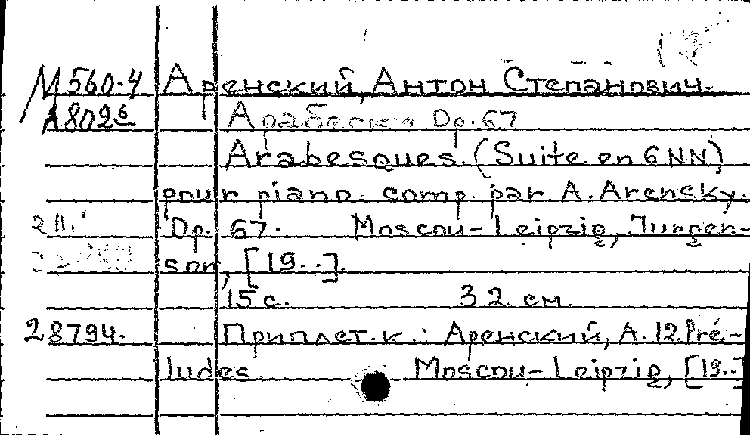 М560.4 Аренский, Антон Степанович.
А802б Арабески Op. 67
Arabesques (Suite en 6 NN)
pour piano comp. par A. Arensky.
2 Op. 67. Moscou-Leipzig, Jurgen-
son, [19..].
15 с. 32 см.
28794. Приплет. к.: Аренский, А. 12 Pré-
ludes Moscou-Leipzig, [19..]